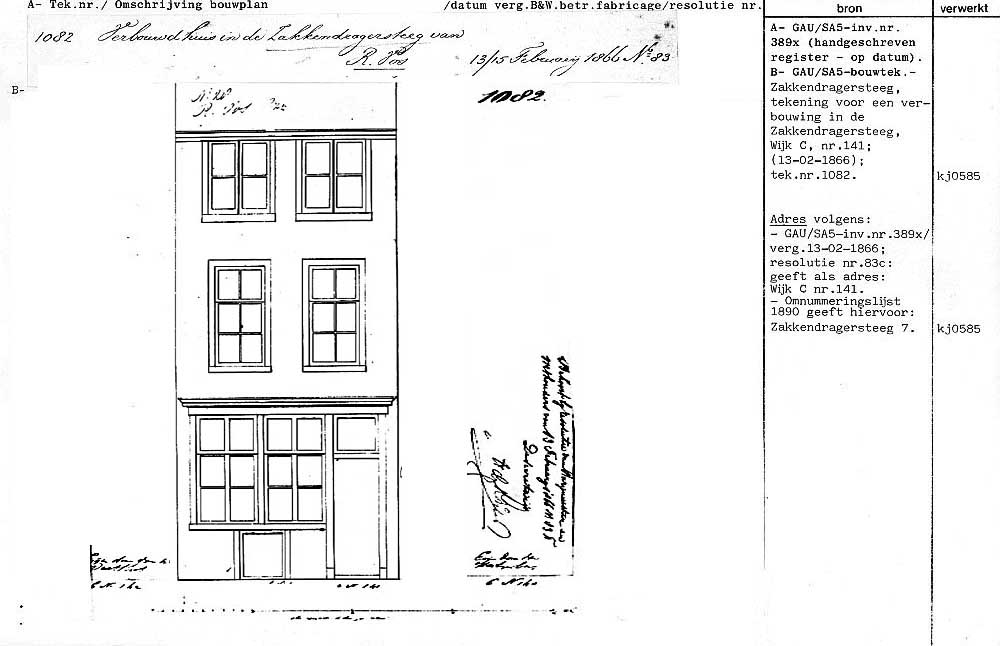 A- Tek.nr./ Omschrijving bouwplan /datum verg.B&W.betr.fabricage/resolutie nr.
bron
verwerkt
1082 Verbouwd huis in de Zakkendragersteeg van
R. Vos 13/15 February 1866 No 83
B-
R. Vos
1082.
A- GAU/SA5-inv.nr.
389x (handgeschreven
register - op datum).
B- GAU/SA5-bouwtek.-
Zakkendragersteeg,
tekening voor een ver-
bouwing in de
Zakkendragersteeg,
Wijk C, nr.141;
(13-02-1866);
tek.nr.1082.
kj0585
Adres volgens:
- GAU/SA5-inv.nr.389x/
verg.13-02-1866;
resolutie nr.83c:
geeft als adres:
Wijk C nr.141.
- Omnummeringslijst
1890 geeft hiervoor:
Zakkendragersteeg 7.
kj0585
De Secretaris